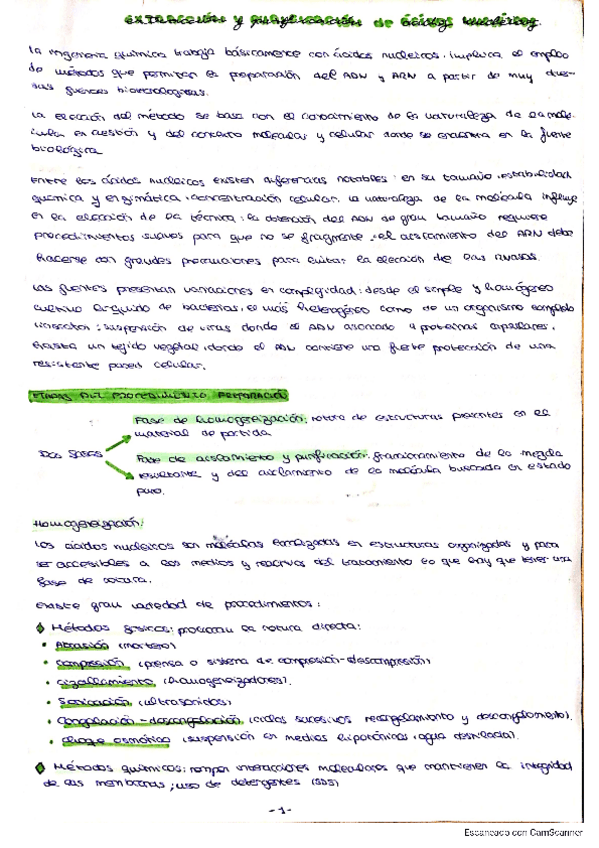 extracción y purificación de ácidos nucleicos.
La ingeniería química trabaja básicamente con ácidos nucleicos. Implica el empleo
de métodos que permiten la preparación del ADN y ARN a partir de muy diver-
sas fuentes biomorológicas.
La elección del método se basa con el conocimiento de la naturaleza de la molé-
cula en cuestión y del contexto molecular y celular donde se encuentra en la fuente
biológica.
Entre los ácidos nucleicos existen diferencias notables: en su tamaño, estabilidad
química y enzimática, concentración celular. La naturaleza de la molécula influye
en la elección de la técnica: la obtención del ADN de gran tamaño requiere
procedimientos suaves para que no se fragmente, el aislamiento del ARN debe
hacerse con grandes precauciones para evitar la elección de las RNasas.
Las fuentes presentan variaciones en complejidad: desde el simple y homogéneo
cultivo líquido de bacterias, el más heterogéneo como de un organismo completo
suspensión de virus donde el ADN asociado a proteínas capsulares,
hasta un tejido vegetal donde el ADN contiene una fuerte protección de una
resistente pared celular.
ETAPAS DEL PROCEDIMIENTO PREPARACIÓN
Fase de homogeneización: rotura de estructuras presentes en el
material de partida
Dos fases
Fase de aislamiento y purificación: fraccionamiento de la mezcla
resultante y del aislamiento de la molécula buscada en estado
puro.
Homogeneización:
Los ácidos nucleicos son moléculas localizadas en estructuras organizadas y para
ser accesibles a los medios y reactivos del tratamiento lo que hay que tener una
fase de rotura.
Existe gran variedad de procedimientos:
Métodos físicos: provocan la rotura directa:
• Abrasión (mortero)
• Compresión (prensa o sistema de compresión-descompresión)
• Cizallamiento (homogeneizadores).
• Sonicación (ultrasonidos)
• Congelación-descongelación (ciclos sucesivos recongelamiento y descongelamiento).
• Choque osmótico (suspensión en medios hipotónicos (agua destilada).
Métodos químicos: rompen interacciones moleculares que mantienen la integridad
de las membranas; uso de detergentes (SDS)
-1-
Escaneado con CamScanner